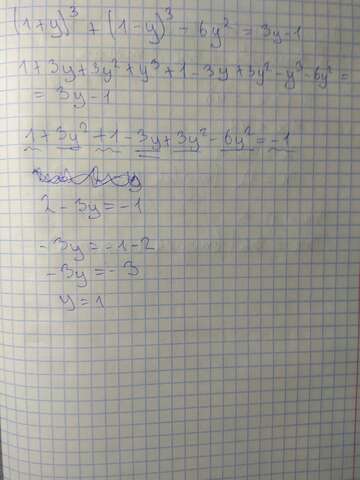 (1+y)³ + (1-y)³ - 6y² = 3y-1
1+3y+3y²+y³+1-3y+3y²-y³-6y² =
= 3y-1
1+3y²+1-3y+3y²-6y²=-1
2-3y=-1
-3y=-1-2
-3y=-3
y=1